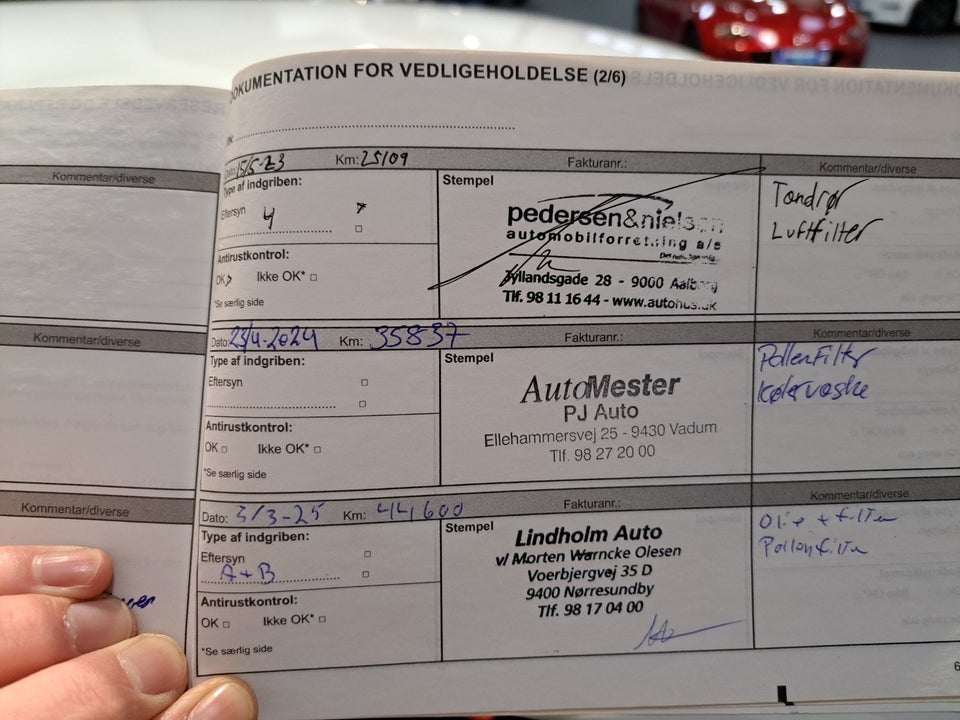 DOKUMENTATION FOR VEDLIGEHOLDELSE (2/6)
Kommentar/diverse
Dato: 15/5-23 Km: 25109 Fakturanr.: Kommentar/diverse
Type af indgriben:
Eftersyn 4
Antirustkontrol:
OK Ikke OK*
*Se særlig side
Stempel
pedersen&nielsen
automobilforretning a/s
Jyllandsgade 28 - 9000 Aalborg
Tlf. 98 11 16 44 - www.autohus.dk
Tændrør
Luftfilter
Kommentar/diverse
Dato: 23/4-2024 Km: 35837 Fakturanr.: Kommentar/diverse
Type af indgriben:
Eftersyn
Antirustkontrol:
OK Ikke OK*
*Se særlig side
Stempel
AutoMester
PJ Auto
Ellehammersvej 25 - 9430 Vadum
Tlf. 98 27 20 00
Pollenfilter
Kølervæske
Kommentar/diverse
Dato: 3/3-25 Km: 44600 Fakturanr.: Kommentar/diverse
Type af indgriben:
Eftersyn
A+B
Antirustkontrol:
OK Ikke OK*
*Se særlig side
Stempel
Lindholm Auto
v/ Morten Warncke Olesen
Voerbjergvej 35 D
9400 Nørresundby
Tlf. 98 17 04 00
Olie + filter
Pollenfilter